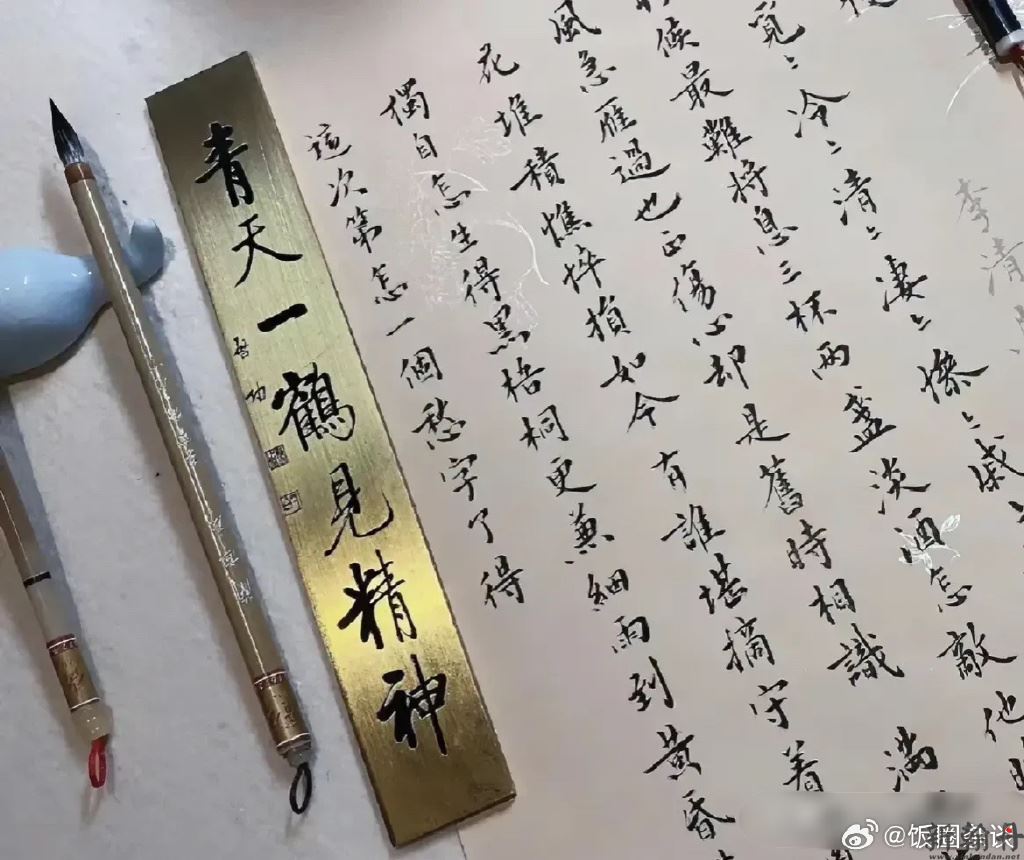 李清
覓〻冷〻清〻凄〻慘〻戚〻
候最難將息三杯兩盞淡酒怎敵他
風急雁過也正傷心却是舊時相識 滿
花堆積憔悴損如今有誰堪摘守着
獨自怎生得黑梧桐更兼細雨到黄昏
這次第怎一個愁字了得
青天一鶴見精神
啓功
@饭圈杂谈